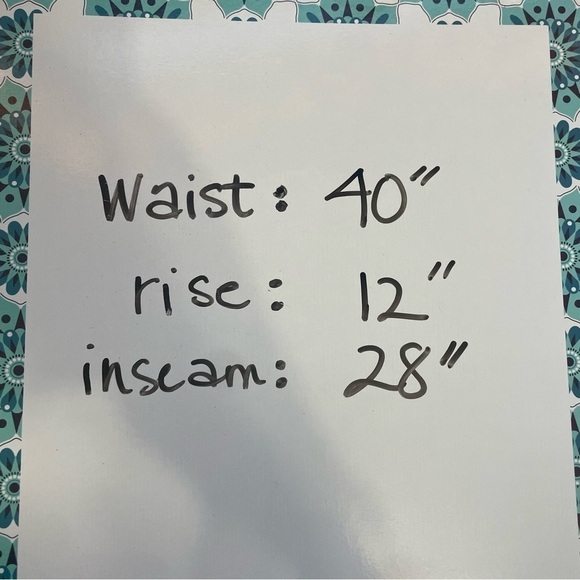 Waist: 40"
rise: 12"
inseam: 28"